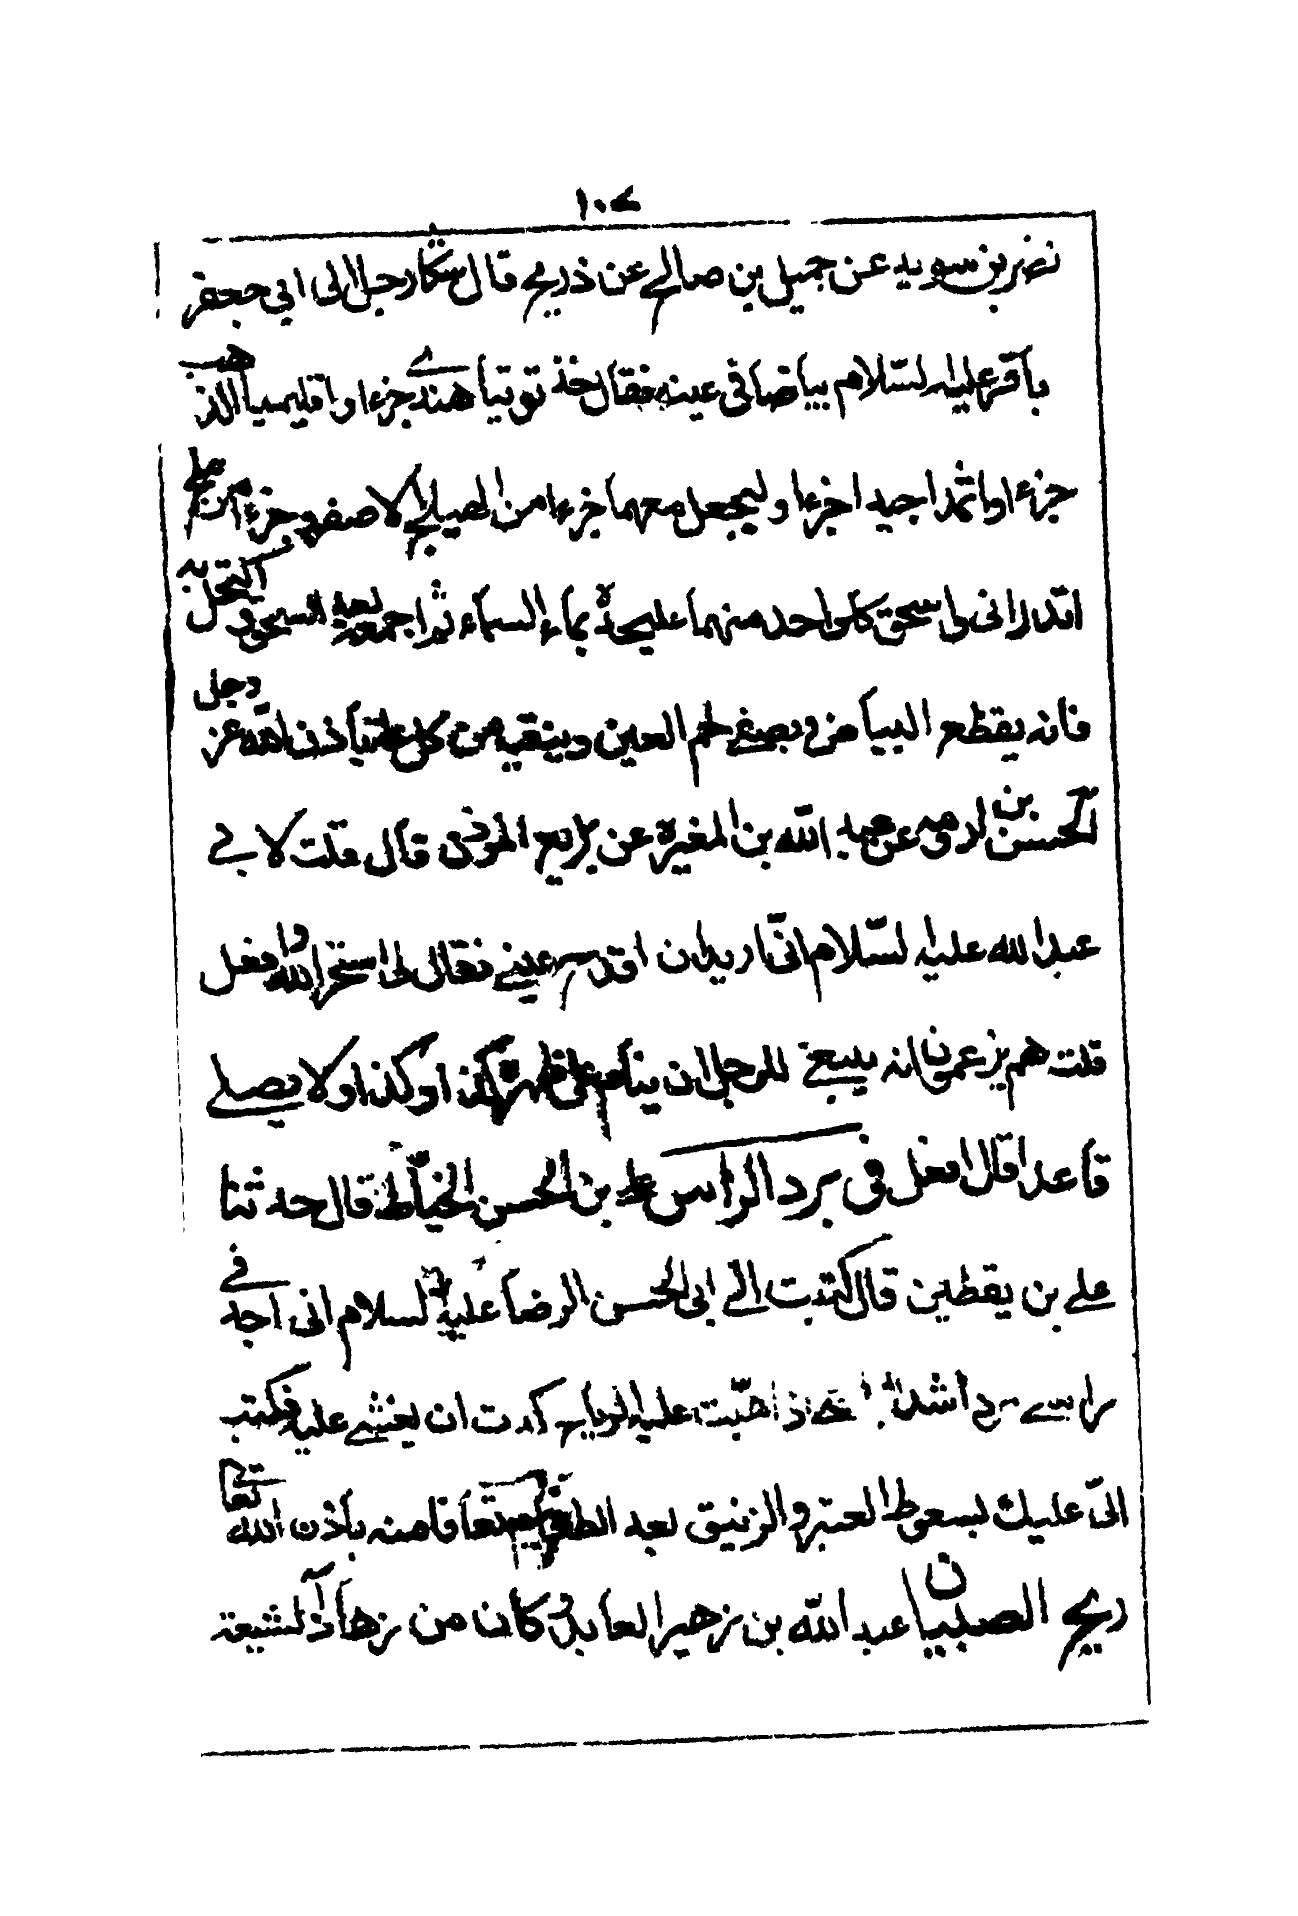 ١٠٤
نضر بن سويد عن جميل بن صالح عن ذريح قال شكا رجل الى ابي جعفر
باقر عليه لسّلام بياضا في عينه فقال خذ توتيا هندي جزءا واقليميا الذهب
جزءا واثمدا جيدا جزءا وليجعل معهما جزءا من الهليلج الاصفر وجزءا من ملح
اندراني واسحق كل واحد منهما عليحدة بماء السماء ثم اجمعه بعد السحق واكتحل به
فانه يقطع البياض ويصفي لحم العين وينقيه من كل علة باذن الله عز وجل
الحسن بن اورمه عن عبد الله بن المغيرة عن بزيع المؤذن قال قلت لابي
عبدالله عليه لسّلام انّي اريد ان اقدح عيني فقال لي استخر الله وافعل
قلت هم يزعمون انه ينبغي للرجل ان ينام على ظهره كذا وكذا ولا يصلي
قاعدا قال افعل في برد الراس علي بن الحسن الخيّاط قال حدثنا
علي بن يقطين قال كتبت الى ابي الحسن الرضا عليه السلام اني اجد في
راسي بردا شديدا حتى اذا هبّت عليه الرياح كدت ان يغشي عليه فكتب
اليّ عليك بسعوط العنبر والزنبق بعد الطعام تعافا منه باذن الله تعالى
ريح الصبيان عبد الله بن زهير العابد وكان من زهاد الشيعة